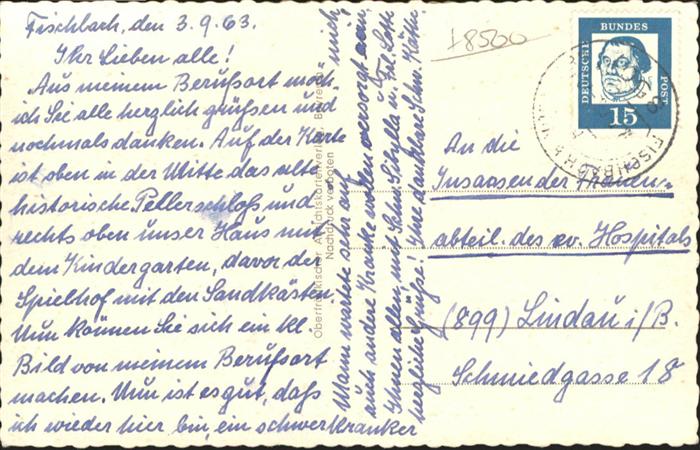 Fischbach, den 3.9.63.
Ihr Lieben alle!
Aus meinem Berufsort möch-
ich Sie alle herzlich grüßen und
nochmals danken. Auf der Karte
ist oben in der Mitte das alte
historische Pellerschloß und
rechts oben unser Haus mit
dem Kindergarten, davor der
Spielhof mit den Sandkästen.
Nun können Sie sich ein kl.
Bild von meinem Berufsort
machen. Nun ist es gut, daß
ich wieder hier bin, ein schwerkranker
Mann wartete sehr auf mich,
auch andere Kranke wollen versorgt sein.
Ihnen allen, mit Schw. Sibylla u. Frl. Lotte
herzliche Grüße! Ihre dankbare Schw. Käthe.
Oberfränkischer Ansichtskartenverlag
Nachdruck verboten
+8500
DEUTSCHE
BUNDES
POST
15
FISCHBACH
An die
Insassen der Frauen-
abteil. des ev. Hospitals
(899) Lindau i/B.
Schmiedgasse 18